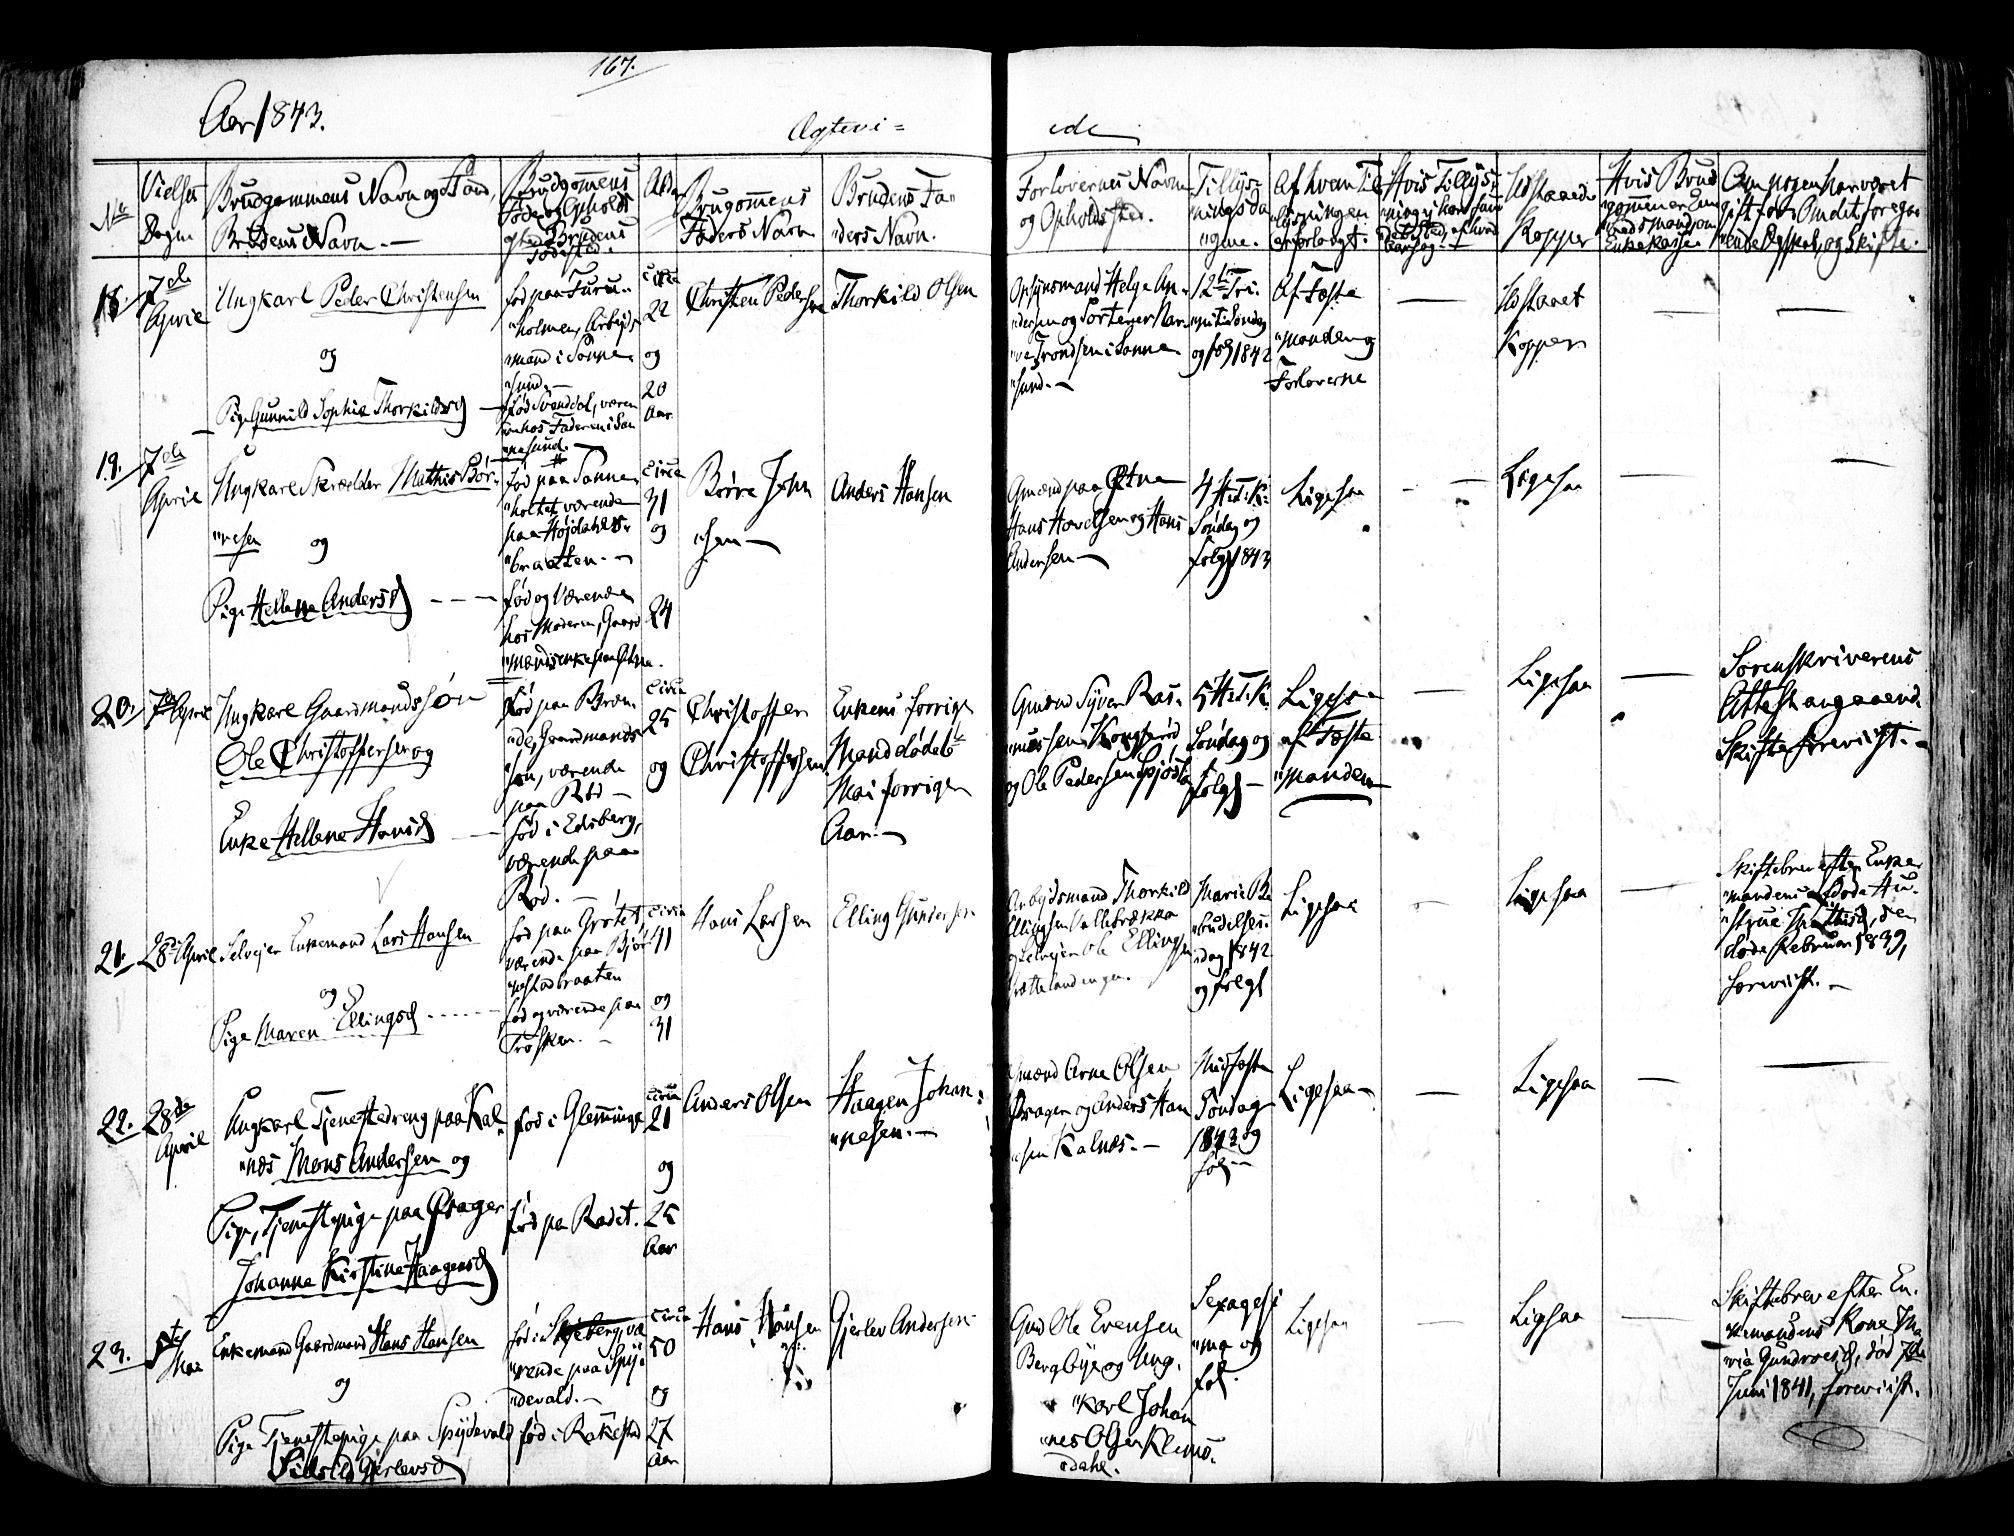 167.
Aar 1843.
Ægtevi=
ede
No
Vielses
Dagen
Brudgommens Navn og Stand,
Brudens Navn.
Brudgommens
Føde og Opholds
sted Brudens
Fødested.
Alder
Brugommens
Faders Navn
Brudens Fa-
"ders Navn.
Forlovernes Navn
og Opholdssted.
Tillys-
"ningsda
"gene.
Af hvem Til
lysningen
er forlangt.
Hvis Tillys-
Udstaaede
Kopper
Hvis Brud
gommen er Enke
Enkekasse
Om nogen har været
gift før, Om det foregaa
"ende Ægteskab, og Skifte.
18.
7de
April
Ungkarl Peder Christensen
og
Pige Gunnild Sophie Thorkildsd
fød paa Furu-
"holmen, Arbejds
"mand i Sanne
"sund.
fød Svenddal, væren
hos Faderen i San
"nesund.
circa
22
og
20
Aar
Christen Pedersen
Thorkild Olsen
Opsynsmand Helge An-
"dersen og Sorterer Nar-
"ve Trondsen i Sanne
"sund.
12te Tri-
"nit: Søndag
og følg 1842
Af Fæste
"manden og
Forloverne
Udstaaet
Kopper
19.
7de
April
Ungkarl Skrædder Mathis Bør-
"resen og
Pige Hellene Andersd
fød paa Sanne-
"holtet, værende
paa Højdahls-
"braatten.
fød og værende
hos Moderen, Gaard
"mandsenke paa Ætne.
circa
31
og
24
Børre John
"sen
Anders Hansen
Gmænd paa Ætne
Hans Hovelsen og Hans
Andersen
4 H. T. K:
Søndag og
følg 1843
Ligesaa
Ligesaa
20.
7de April
Ungkarl Gaardmandssøn
Ole Christoffersen og
Enke Hellene Hansd
fød paa Bron-
"de, Gaardmands
"søn, værende
paa Rød
fød i Edsberg,
værende paa
Rød.
circa
25
og
Christoffer
Christoffersen
Enkens forrige
Mand døde
Mai forrige
Aar.
Gmænd Syver Ras-
"mussen Kongsrød
og Ole Pedersen
5 H. T. K.
Søndag og
følg
Ligesaa
af Fæste
"manden
Ligesaa
Sorenskriverens
Attest angaaend
Skifte foreviist.
21.
28de April
Selvejer Enkemand Lars Hansen
og
Pige Maren Ellingsd
fød paa Grøtet,
værende paa Bjør
"nstadbraaten
fød og værende paa
Trøsken.
circa
41
og
31
Hans Larsen
Elling Gundersen
Arbejdsmand Thorkild
Ellingsen Vallebrækka
og Selvejer Ole Ellingsen
Maria Be
"budelses-
"dag 1842
og følg
Ligesaa
Ligesaa
Skiftebrev efter Enke-
"mandens afdøde Hu-
"strue den
døde Februar 1839,
foreviist.
22.
28de
April
Ungkarl Tjenestedreng paa Kal
"næs Mons Andersen og
Pige, Tjenestepige paa Prager
Johanne Kirstine Haagensd
fød i Glemminge
fød paa Radet.
circa
21
og
25
Aar
Anders Olsen
Haagen Johan-
"nesen.
Gmænd Arne Olsen
Prager og Anders Han
"sen Kalnæs.
Midfaste
Søndag
1843 og
følg
Ligesaa
Ligesaa
23.
5te
Mai
Enkemand Gaardmand Hans Hansen
og
Pige Tjenestepige paa Spydevald
Sidseld Gjerlovsd
fød i Skjeberg, væ
"rende paa Spy-
"devald.
fød i Rakkestad
circa
50
og
27
Aar
Hans Hansen
Gjerlov Andersen
Gmd Ole Evensen
Bergbye og Ung-
"karl Johan
"nes Olsen Klems-
"dahl.
Sexagesi
"ma og
føl.
Ligesaa
Ligesaa
Skiftebrev efter En-
"kemandens Kone Ma
"ria Gundersd, død 7de
Juni 1841, foreviist.